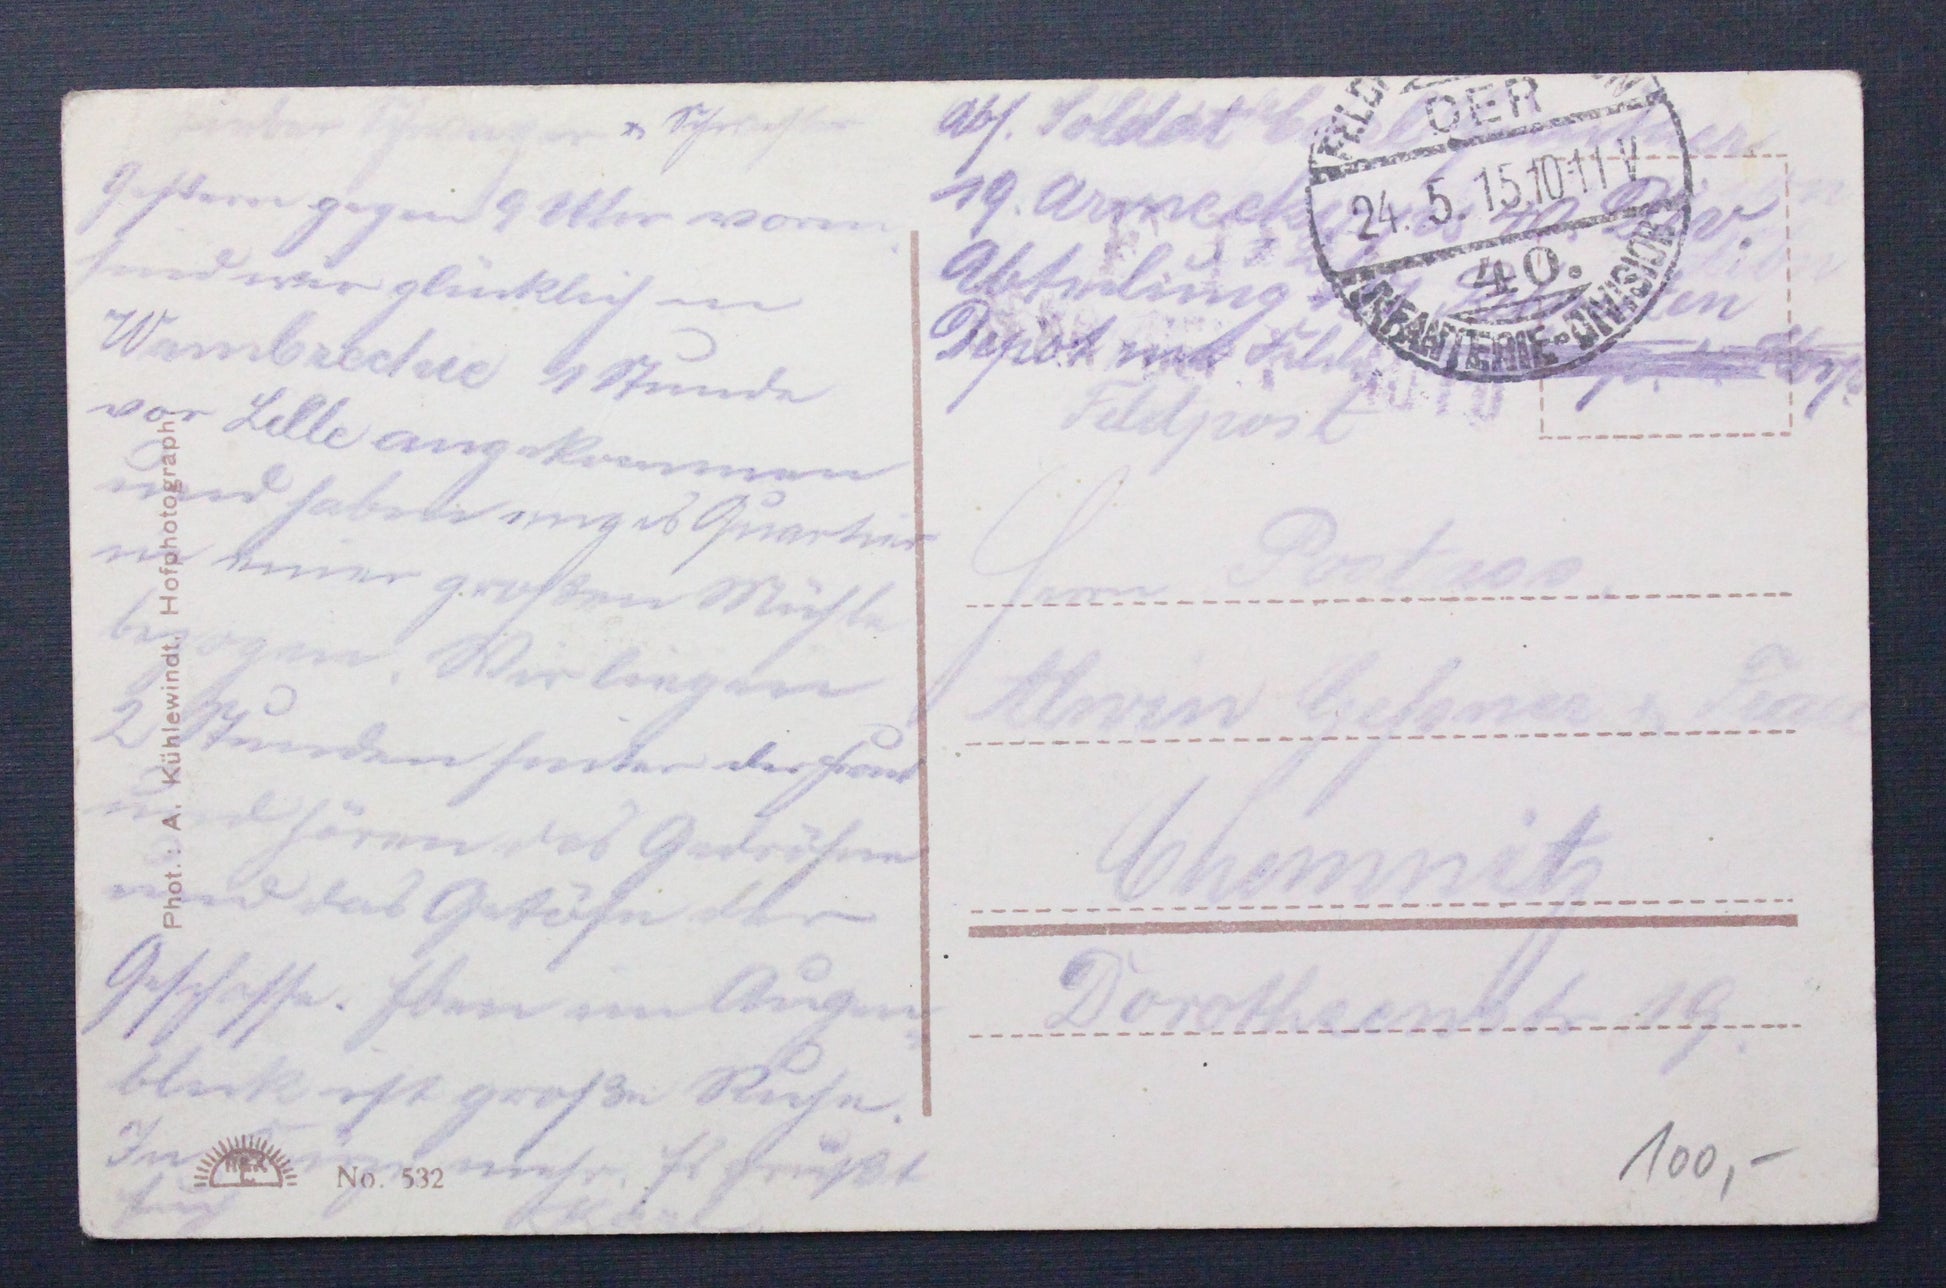 Lieber Schwager & Schwester
Gestern gegen 9 Uhr vorm.
sind wir glücklich in
Wambrechie 1 Stunde
vor Lille angekommen
und haben enges Quartier
in einer großen Mühle
bezogen. Wir liegen
2 Stunden hinter der Front
und hören das Gedröhne
und das Getöse der
Geschosse. Eben im Augen-
blick ist große Ruhe.
In mehr. Es grüßt
Euch Karl
Phot.: A. Kühlewindt, Hofphotograph
No. 532
Abs. Soldat
19. Armeekorps 40. Div
Abteilung
Depot
Feldpost
DER
24. 5. 15. 10-11 V
40.
INFANTERIE-DIVISION
Herrn Postass.
Alwin Geßner & Frau
Chemnitz
Dorotheenstr. 19.
100,-